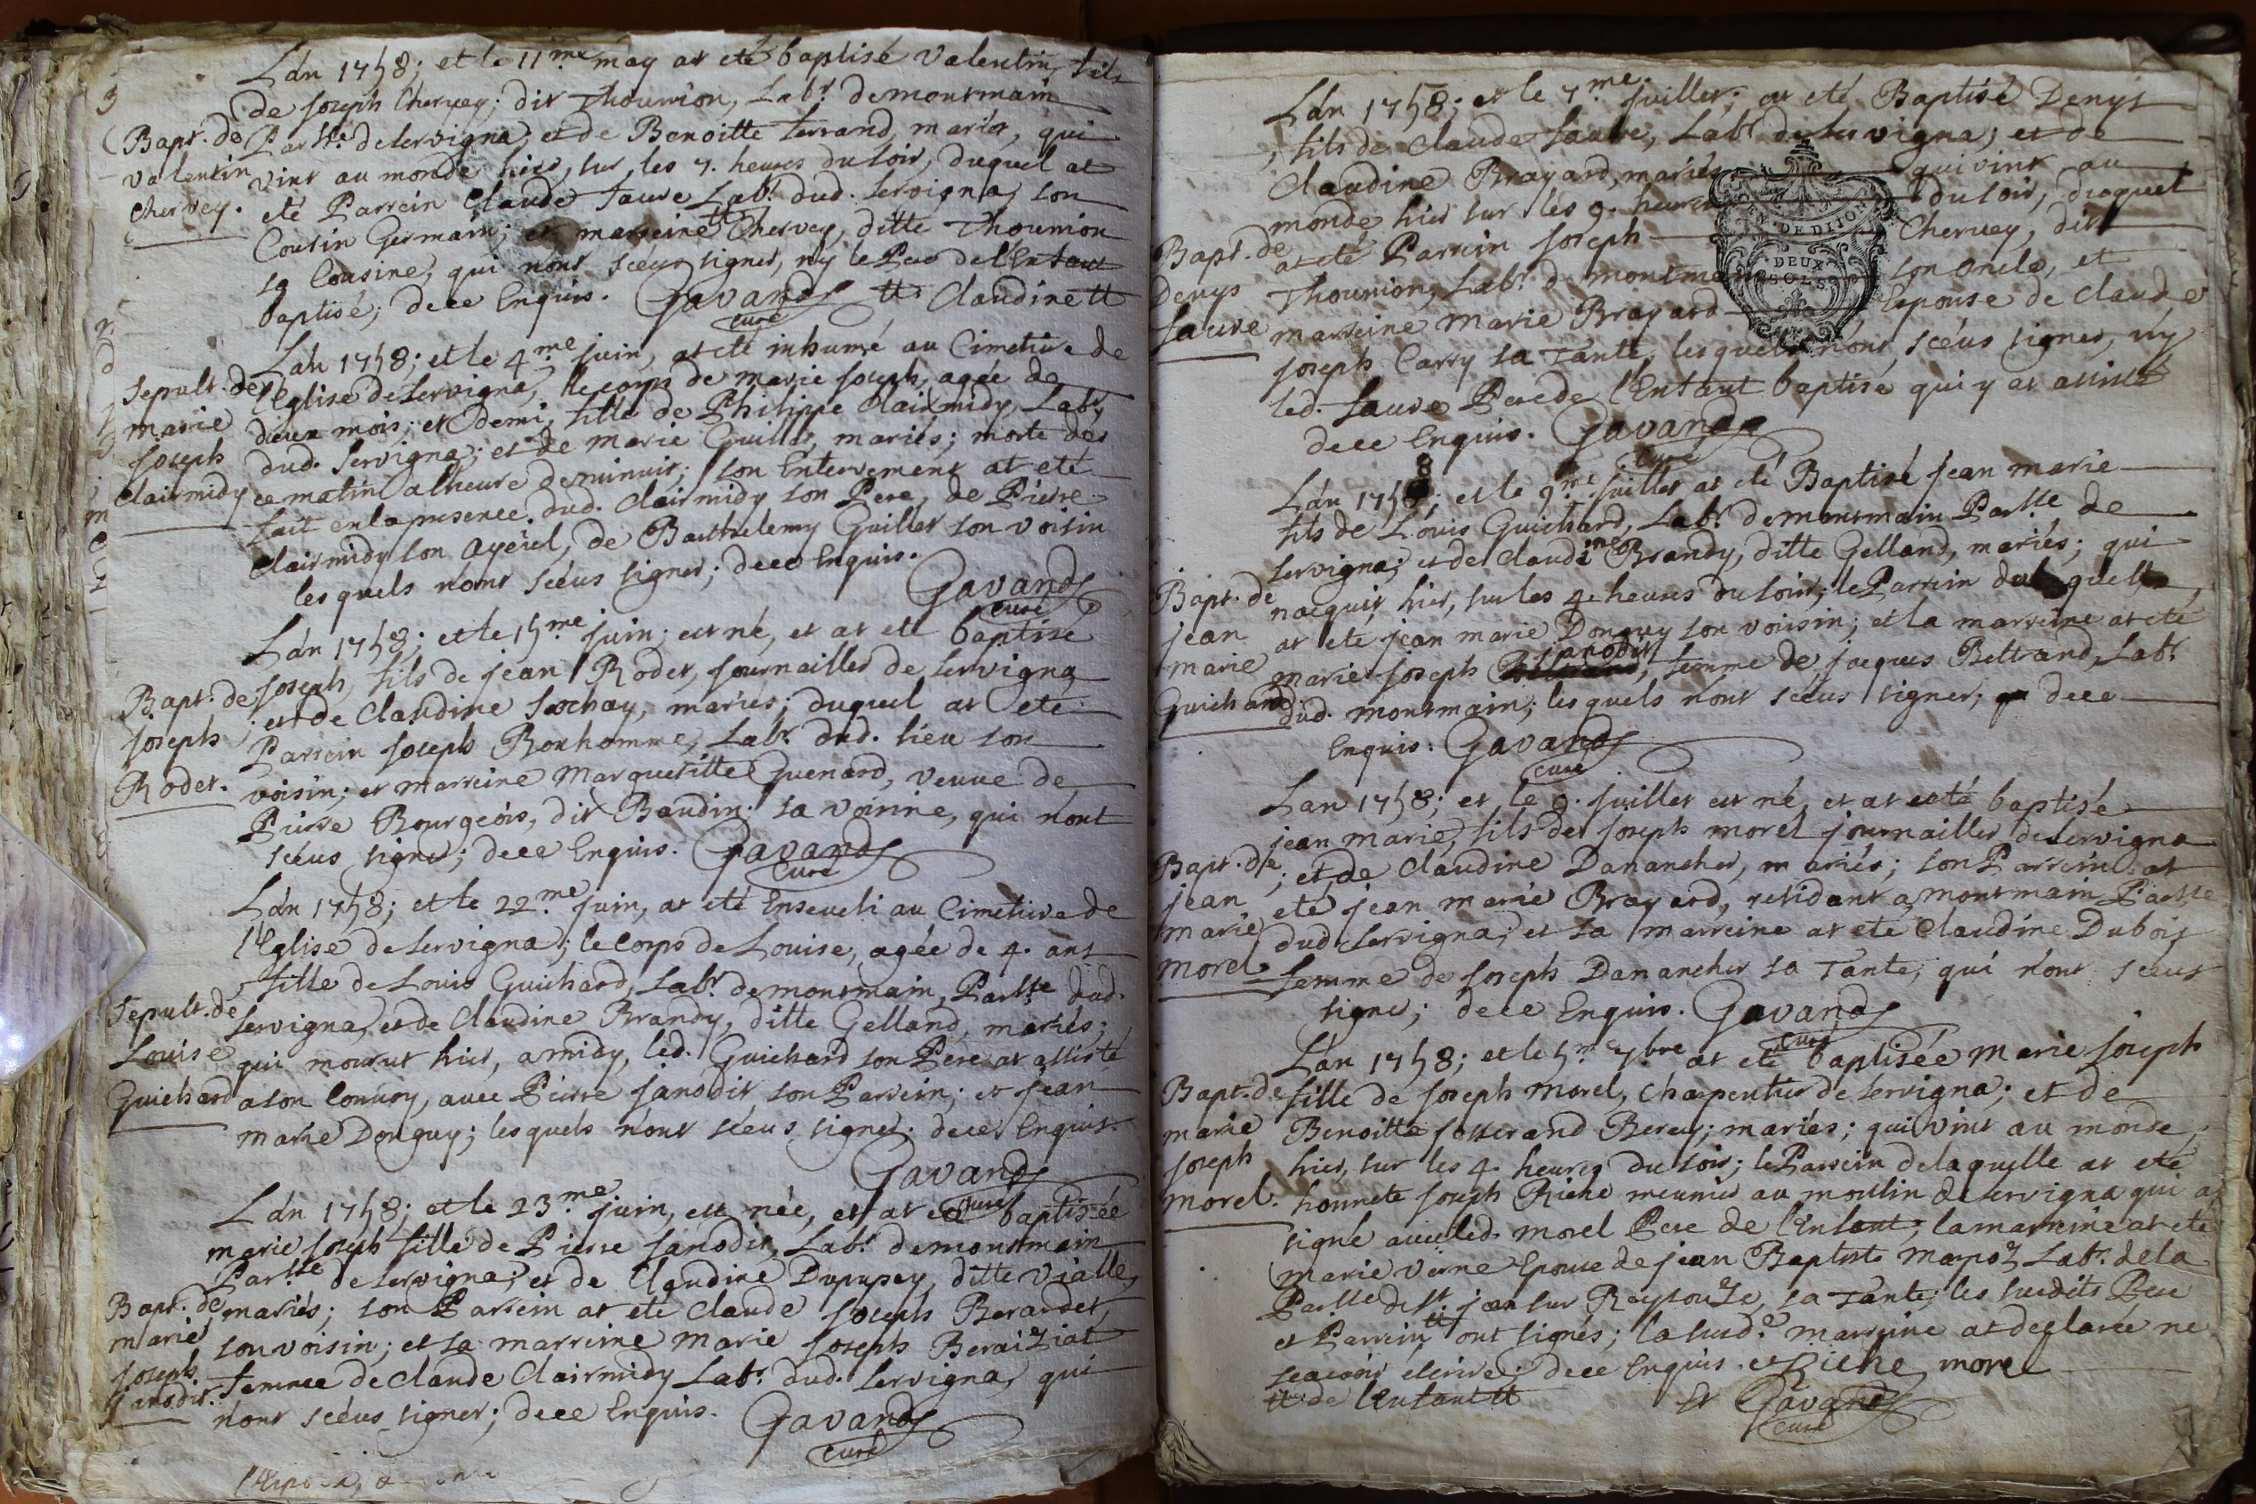 L'an 1758; et le 11.me may at eté baptisé valentin, fils
de joseph Chervey; dit Thounion, Lab.r de montmain
Bapt. de
valentin
Chervey.
Par.sse de Servigna; et de Benoitte ferrand, mariés, qui
vint au monde hier, sur les 7. heures du soir, duquel at
eté Parrein Claude faure Lab.r dud. Servigna, son
Cousin Germain; et marreine tt Chervey, ditte Thounion
sa Cousine, qui n'ont sceus signer, ny le Pere de l'Enfant
baptisé; de ce Enquis. Gavand tt Claudine tt
curé
L'an 1758; et le 4.me juin, at eté inhumé au Cimetiere de
Sepult. de
marie
joseph
Clairmidy
l'Eglise de Servigna, le corps de marie joseph, agée de
deux mois; et demi, fille de Philippe Clairmidy, Lab.r
dud. Servigna; et de marie Guillet, mariés; morte dés
ce matin a l'heure de minuit; son Enterrement at eté
fait en la presence dud. Clairmidy son Pere, de Pierre
Clairmidy son Ayeul, de Barthelemy Guillet son voisin
les quels n'ont sceus signer; de ce Enquis.
Gavand
curé
L'an 1758; et le 15.me juin; est né, et at eté baptisé
Bapt. de
joseph
Rodet.
joseph, fils de jean Rodet, journailler de Servigna
et de Claudine Sochay, mariés; duquel at eté
Parrein joseph Bonhomme, Lab.r dud. lieu son
voisin; et marreine Margueritte Guenard, veuve de
Pierre Bourgeois, dit Baudin; sa voisine, qui n'ont
sceus signer; de ce Enquis. Gavand
curé
L'an 1758; et le 22.me juin, at eté Enseveli au Cimetiere de
l'Eglise de Servigna; le corps de Louise, agée de 4. ans
fille de Louis Guichard, Lab.r de montmain, Par.sse dud.
Sepult. de
Louise
Guichard
Servigna, et de Claudine Brandy, ditte Gelland, mariés;
qui mourut hier, a midy, led. Guichard son Pere at assisté
a son Convoy, avec Pierre janodit son Parrein; et jean
marie Donguy; les quels n'ont sceus signer; de ce Enquis.
Gavand
curé
L'an 1758; et le 23.me juin, est née, et at eté baptisée
marie joseph fille de Pierre janodit, Lab.r de montmain
Par.sse de Servigna; et de Claudine Dupupey, ditte vialle,
Bapt. de
marie
joseph
janodit.
mariés; son Parrein at eté Claude joseph Berardet,
son voisin; et sa marreine Marie joseph Beraiziat
femme de Claude Clairmidy Lab.r dud. Servigna, qui
n'ont sceus signer; de ce Enquis. Gavand
curé
L'an 1758; et le 7.me juillet; at eté Baptisé Denys
fils de Claude faure, Lab.r de Servigna; et de
Claudine Brayard, mariés qui vint au
monde hier sur les 9. heures du soir, duquel
Bapt. de
Denys
faure
at eté Parrein joseph Chervey, dit
Thounion, Lab.r de montmain son oncle, et
marreine Marie Brayard Epouse de Claude
joseph Carry sa Tante, les quels n'ont sceus signer, ny
led. faure Pere de l'Enfant baptisé qui y at assisté
de ce Enquis. Gavand
curé
EN. DE DIJON
DEUX
SOLS
L'an 1758; et le 9.me juillet at eté Baptisé jean marie
fils de Louis Guichard, Lab.r de montmain Par.sse de
Servigna; et de Claudine Brandy, ditte Gelland, mariés; qui
Bapt. de
jean
marie
Guichard
nacquit, hier, sur les 4. heures du soir; le Parrein duquel
at eté jean marie Donguy son voisin; et la marreine at eté
janodit
marie joseph, femme de jacques Beltrand, Lab.r
dud. montmain; les quels n'ont sceus signer; de ce
Enquis. Gavand
curé
L'an 1758; et le 9. juillet est né, et at eté baptisé
jean marie, fils de joseph morel journailler de Servigna
Bapt. de
jean
marie
morel
; et de Claudine Danancher, mariés; son Parrein at
eté jean marie Brayard, residant a montmain Par.sse
dud. Servigna; et sa marreine at eté Claudine Dubois
femme de joseph Danancher sa Tante; qui n'ont sceus
signer; de ce Enquis. Gavand
curé
L'an 1758; et le 5.me 7.bre at eté baptisée Marie joseph
Bapt. de
marie
joseph
morel.
fille de joseph morel, Charpentier de Servigna; et de
Benoitte josserand Berey; mariés; qui vint au monde,
hier, sur les 4. heures du soir; le Parrein de laquelle at eté
honnete joseph Riche meunier au moulin de Servigna qui a
signé avec led. morel Pere de l'Enfant; la marreine at eté
marie verne Epouse de jean Baptiste marpoz Lab.r de la
Par.sse de St. jean sur Reysouze, sa Tante; les susdits Pere
et Parrein tt ont signés; la susd.e marreine at declarée ne
scavoir ecrire; de ce Enquis. et Riche morel
tt de l'Enfant tt Et Gavand
curé